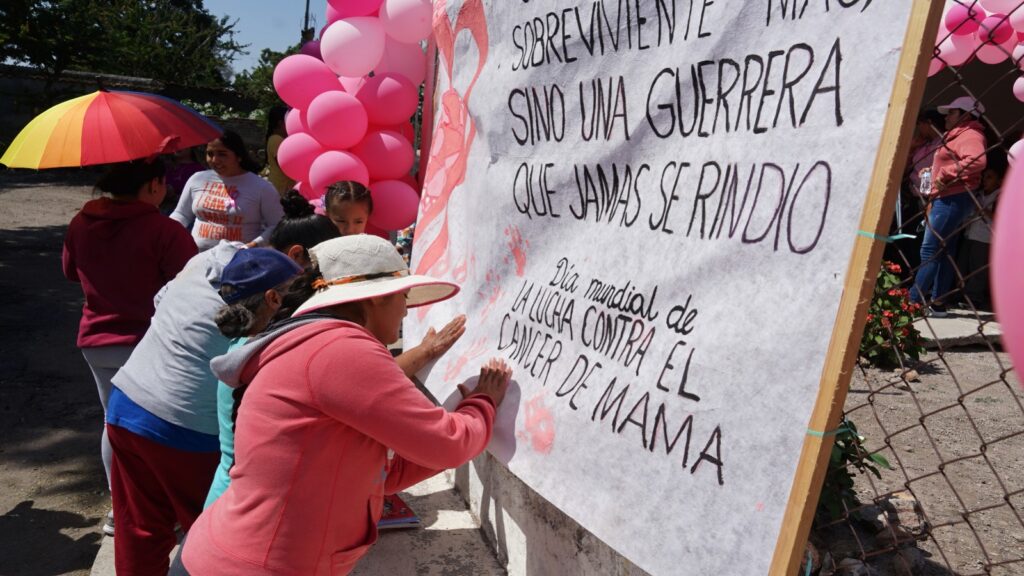 SOBREVIVIENTE MAS,
SINO UNA GUERRERA
QUE JAMAS SE RINDIO
Día mundial de
LA LUCHA CONTRA EL
CANCER DE MAMA
I CAME
AWESOME